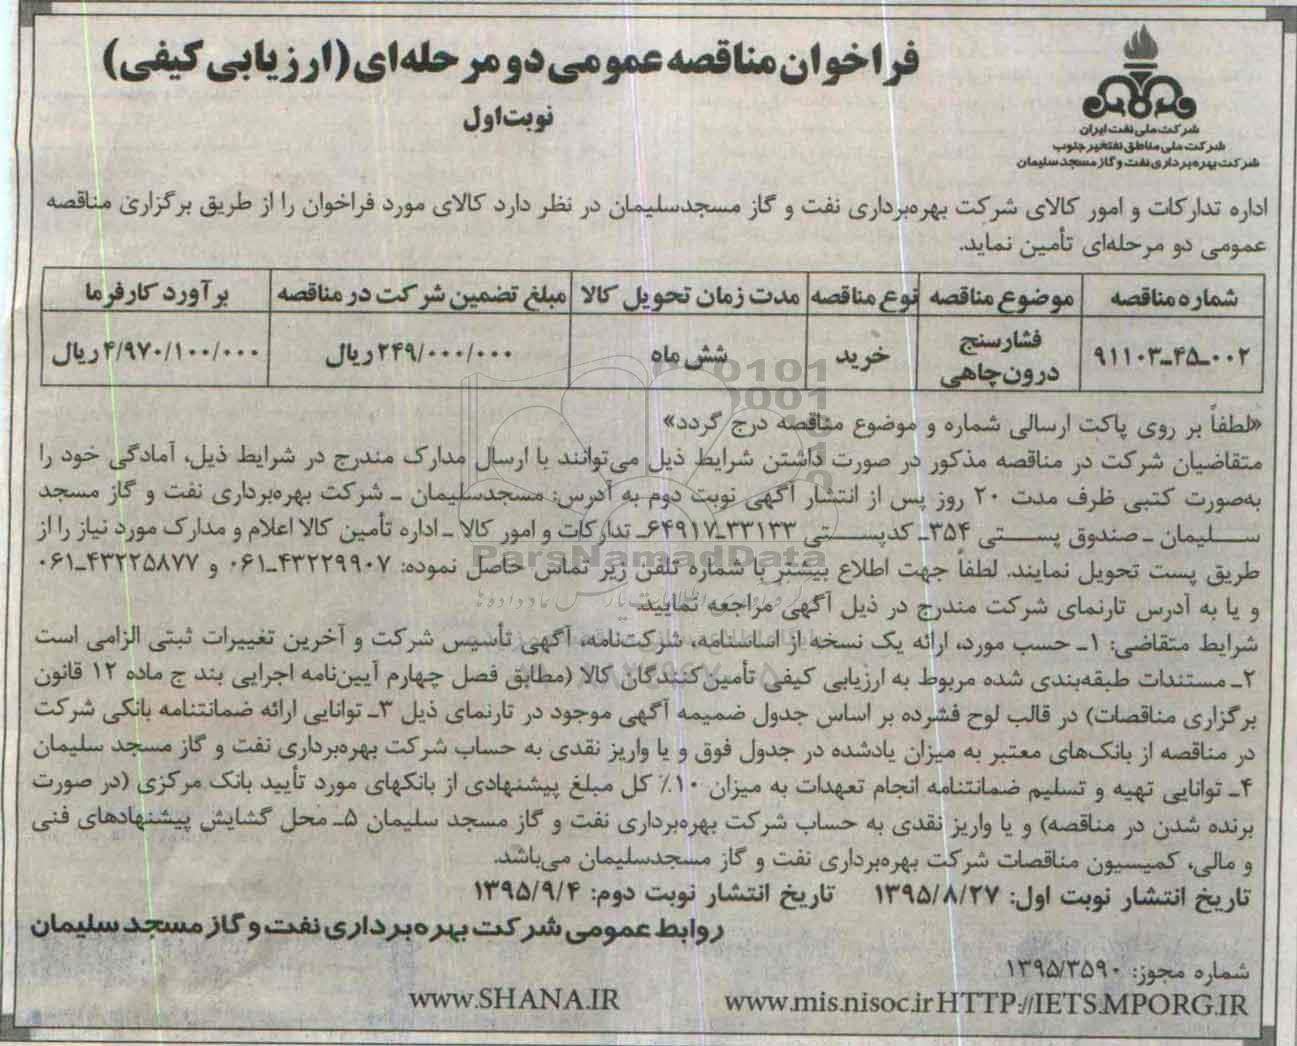 شرکت ملی نفت ایران
شرکت ملی مناطق نفتخیز جنوب
شرکت بهره‌برداری نفت و گاز مسجد سلیمان
فراخوان مناقصه عمومی دو مرحله‌ای (ارزیابی کیفی)
نوبت اول
اداره تدارکات و امور کالای شرکت بهره‌برداری نفت و گاز مسجدسلیمان در نظر دارد کالای مورد فراخوان را از طریق برگزاری مناقصه
عمومی دو مرحله‌ای تأمین نماید.
شماره مناقصه | موضوع مناقصه | نوع مناقصه | مدت زمان تحویل کالا | مبلغ تضمین شرکت در مناقصه | برآورد کارفرما
۰۰۲-۴۵-۹۱۱۰۳ | فشارسنج درون‌چاهی | خرید | شش ماه | ۲۴۹/۰۰۰/۰۰۰ ریال | ۴/۹۷۰/۱۰۰/۰۰۰ ریال
«لطفاً بر روی پاکت ارسالی شماره و موضوع مناقصه درج گردد»
متقاضیان شرکت در مناقصه مذکور در صورت داشتن شرایط ذیل می‌توانند با ارسال مدارک مندرج در شرایط ذیل، آمادگی خود را
به‌صورت کتبی ظرف مدت ۲۰ روز پس از انتشار آگهی نوبت دوم به آدرس: مسجدسلیمان ـ شرکت بهره‌برداری نفت و گاز مسجد
سلیمان ـ صندوق پستی ۳۵۴ـ کدپستی ۳۳۱۳۳-۶۴۹۱۷ـ تدارکات و امور کالا ـ اداره تأمین کالا اعلام و مدارک مورد نیاز را از
طریق پست تحویل نمایند. لطفاً جهت اطلاع بیشتر با شماره تلفن زیر تماس حاصل نموده: ۴۳۲۲۹۹۰۷-۰۶۱ و ۴۳۲۲۵۸۷۷-۰۶۱
و یا به آدرس تارنمای شرکت مندرج در ذیل آگهی مراجعه نمایید.
شرایط متقاضی: ۱ـ حسب مورد، ارائه یک نسخه از اساسنامه، شرکت‌نامه، آگهی تأسیس شرکت و آخرین تغییرات ثبتی الزامی است
۲ـ مستندات طبقه‌بندی شده مربوط به ارزیابی کیفی تأمین‌کنندگان کالا (مطابق فصل چهارم آیین‌نامه اجرایی بند ج ماده ۱۲ قانون
برگزاری مناقصات) در قالب لوح فشرده بر اساس جدول ضمیمه آگهی موجود در تارنمای ذیل ۳ـ توانایی ارائه ضمانتنامه بانکی شرکت
در مناقصه از بانک‌های معتبر به میزان یادشده در جدول فوق و یا واریز نقدی به حساب شرکت بهره‌برداری نفت و گاز مسجد سلیمان
۴ـ توانایی تهیه و تسلیم ضمانتنامه انجام تعهدات به میزان ۱۰٪ کل مبلغ پیشنهادی از بانکهای مورد تأیید بانک مرکزی (در صورت
برنده شدن در مناقصه) و یا واریز نقدی به حساب شرکت بهره‌برداری نفت و گاز مسجد سلیمان ۵ـ محل گشایش پیشنهادهای فنی
و مالی، کمیسیون مناقصات شرکت بهره‌برداری نفت و گاز مسجدسلیمان می‌باشد.
تاریخ انتشار نوبت اول: ۱۳۹۵/۸/۲۷ تاریخ انتشار نوبت دوم: ۱۳۹۵/۹/۴
روابط عمومی شرکت بهره‌برداری نفت و گاز مسجد سلیمان
شماره مجوز: ۱۳۹۵/۳۵۹۰
www.SHANA.IR www.mis.nisoc.ir HTTP://IETS.MPORG.IR
ParsNamadData